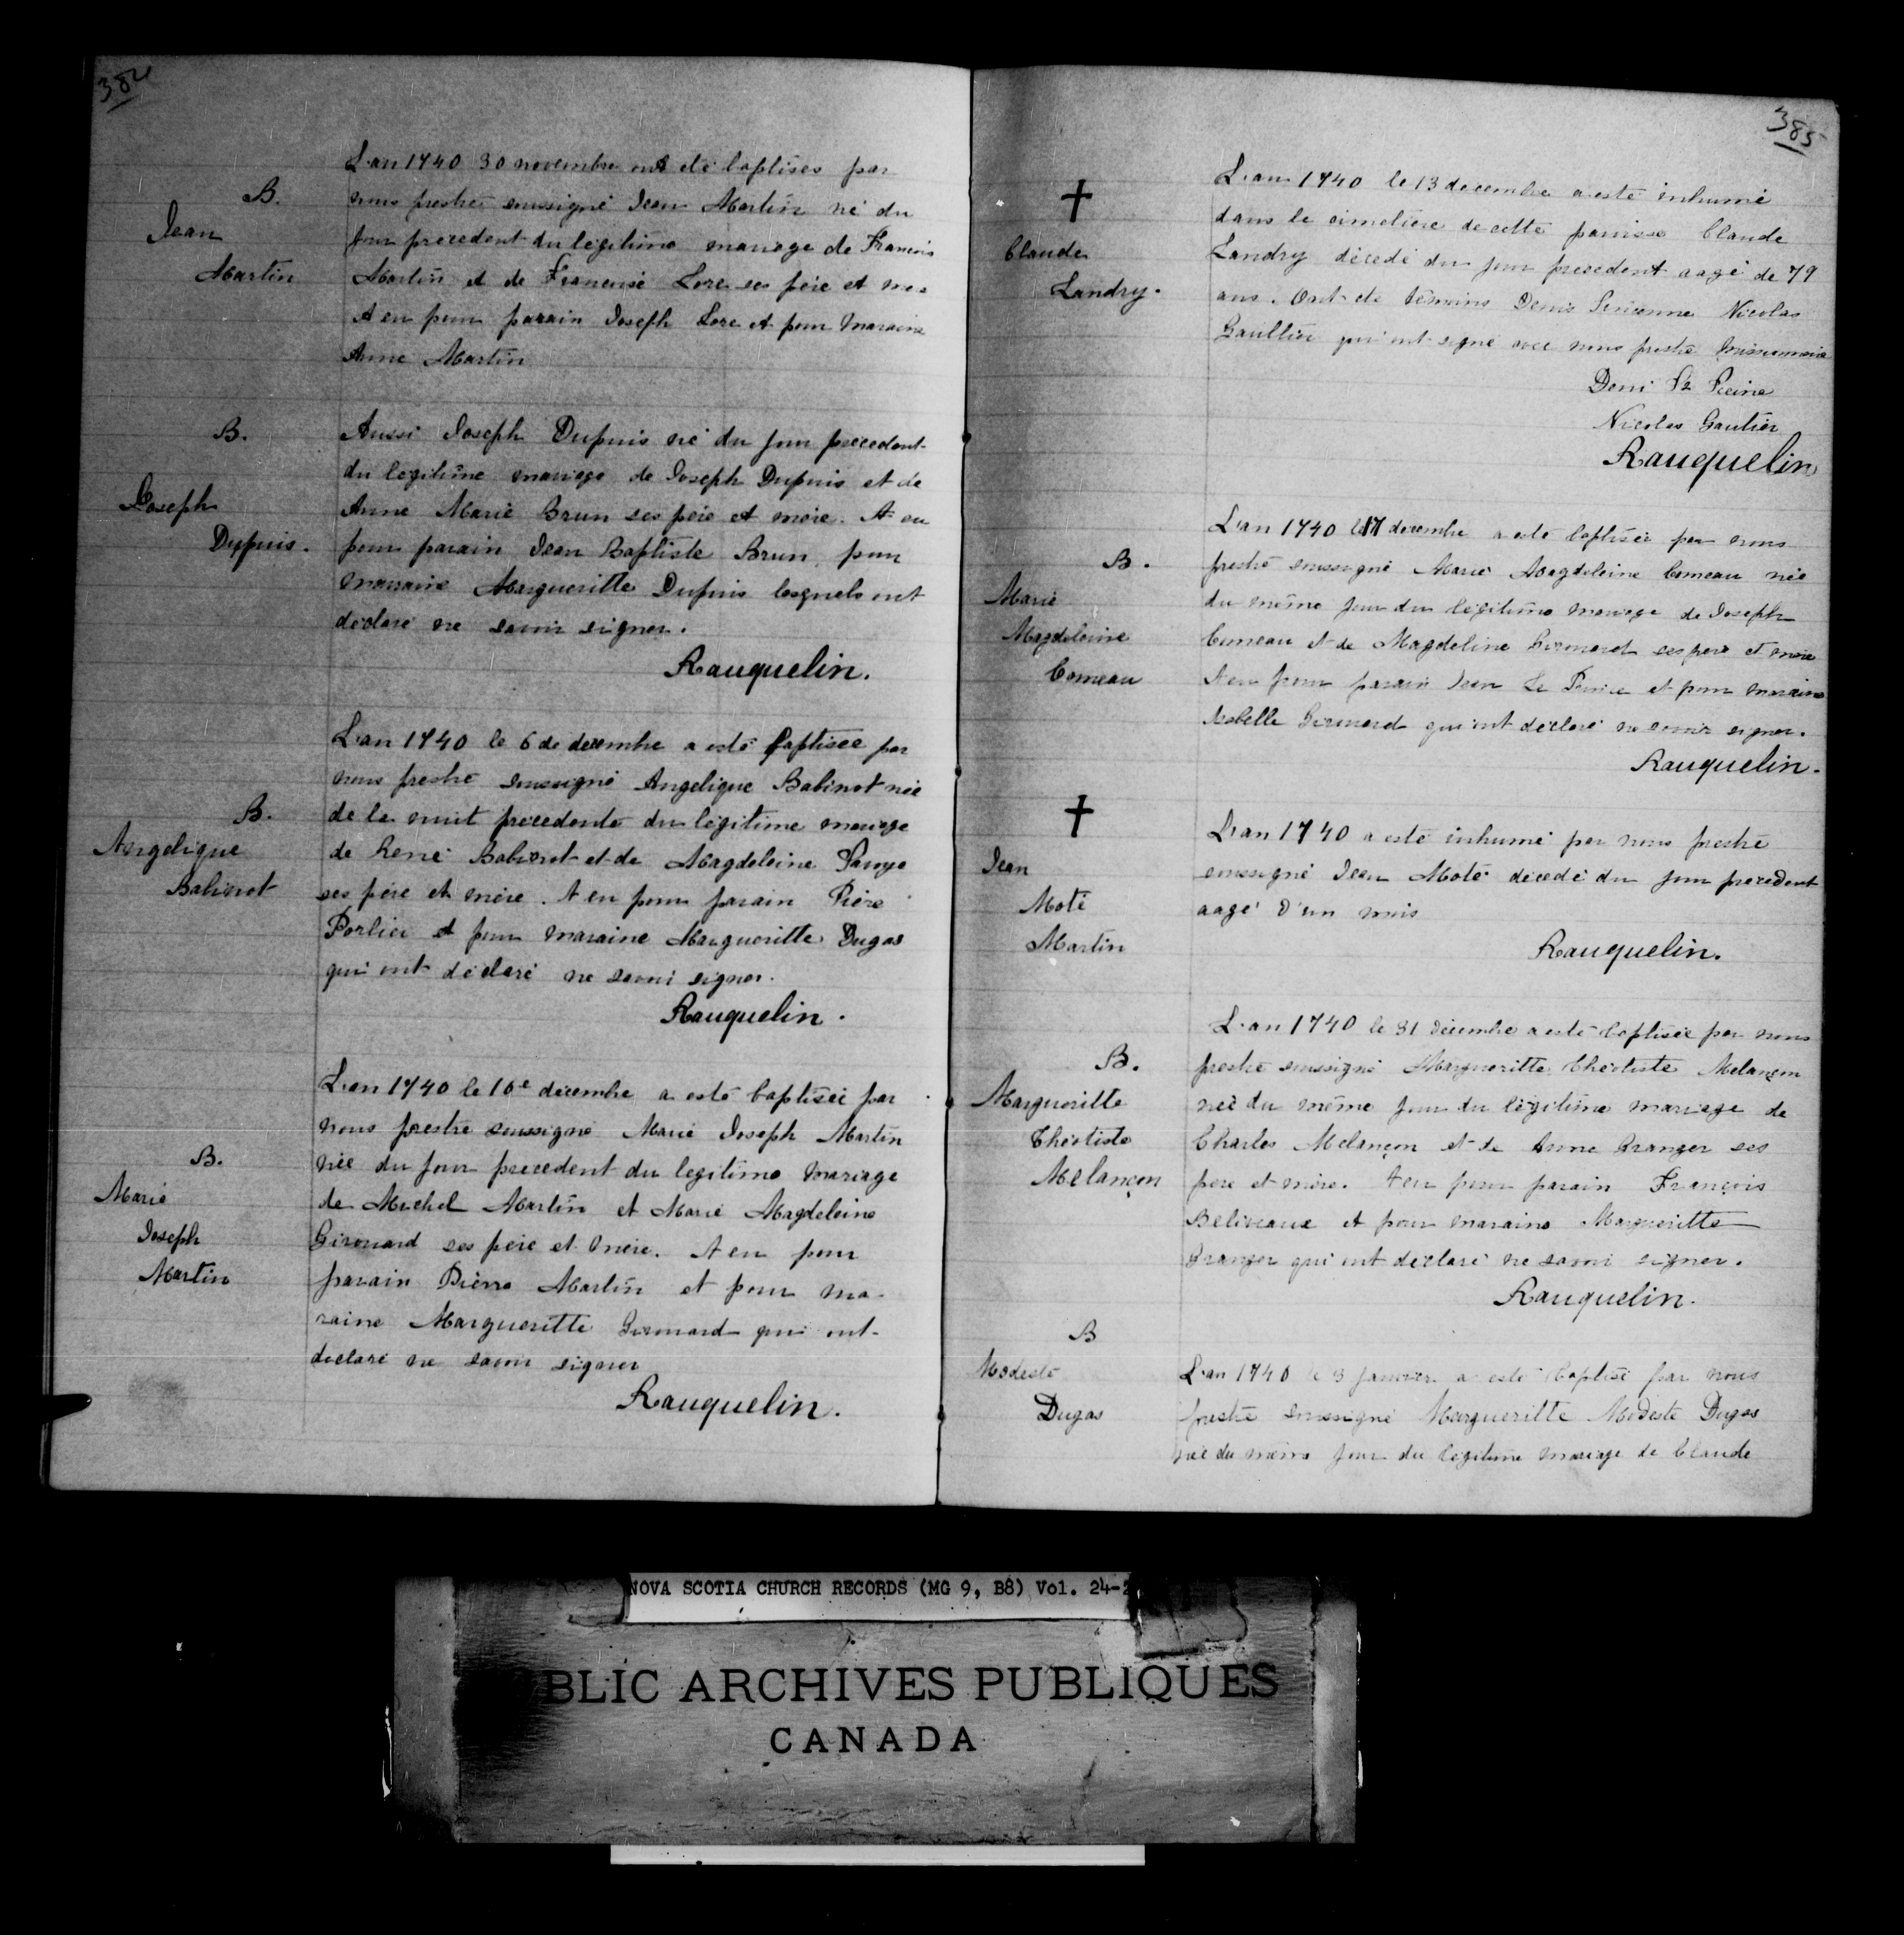 384
L'an 1740 30 novembre ont eté baptises par
B.
nous prestre soussigné Jean Martin né du
Jean
jour precedent du legitime mariage de Francois
Martin
Martin et de Francoise Lore ses pére et
A eu pour parain Joseph Lore et pour maraine
Anne Martin
B.
Aussi Joseph Dupuis né du jour precedent
du legitime mariage de Joseph Dupuis et de
Joseph
Anne Marie Brun ses pére et mére. A eu
Dupuis.
pour parain Jean Baptiste Brun, pour
maraine Margueritte Dupuis lesquels ont
declaré ne savoir signer.
Rauquelin.
L'an 1740 le 6 de decembre a esté baptisée par
nous prestre soussigné Angelique Babinot née
B.
de la nuit precedente du légitime mariage
Angelique
de René Babinot et de Magdeleine
Babinot
ses pére et mére. A eu pour parain Piére
Porlier et pour maraine Margueritte Dugas
qui ont déclaré ne savoir signer.
Rauquelin.
L'an 1740 le 10e decembre a esté baptisée par
nous prestre soussigné Marie Joseph Martin
B.
née du jour precedent du legitime mariage
Marie
de Michel Martin et Marie Magdeleine
Joseph
Girouard ses pére et mére. A eu pour
Martin
parain Pierre Martin et pour ma-
raine Margueritte Girouard qui ont
declaré ne savoir signer
Rauquelin.
385
L'an 1740 le 13 decembre a esté inhumé
dans le cimetiere de cette paroisse Claude
Claude
Landry décedé du jour precedent aagé de 79
Landry.
ans. Ont eté témoins Denis Nicolas
Gaultier qui ont signé avec nous prestre missionnaire
Deni
Nicolas Gautier
Rauquelin
L'an 1740 le 17 decembre a esté baptisée par nous
B.
prestre soussigné Marie Magdeleine Comeau née
Marie
du même jour du légitime mariage de Joseph
Magdeleine
Comeau et de Magdeline Girouard ses pere et mére
Comeau
A eu pour parain Jean Le Prince et pour maraine
Isabelle Girouard qui ont déclaré ne savoir signer.
Rauquelin.
L'an 1740 a esté inhumé par nous prestre
Jean
soussigné Jean Moté décedé du jour precedent
Moté
aagé d'un mois
Martin
Rauquelin.
L'an 1740 le 31 décembre a esté baptisée par nous
B.
prestre soussigné Margueritte Théotiste Melançon
Margueritte
née du même jour du légitime mariage de
Théotiste
Charles Melançon et de Anne Granger ses
Melançon
pere et mére. A eu pour parain François
Beliveaux et pour maraine Margueritte
Granger qui ont declaré ne savoir signer.
Rauquelin.
B
Modeste
L'an 1740 le 3 janvier a esté baptisé par nous
Dugas
prestre soussigné Margueritte Modeste Dugas
née du méme jour du legitime mariage de Claude
NOVA SCOTIA CHURCH RECORDS (MG 9, B8) Vol. 24-2
BLIC ARCHIVES PUBLIQUES
CANADA